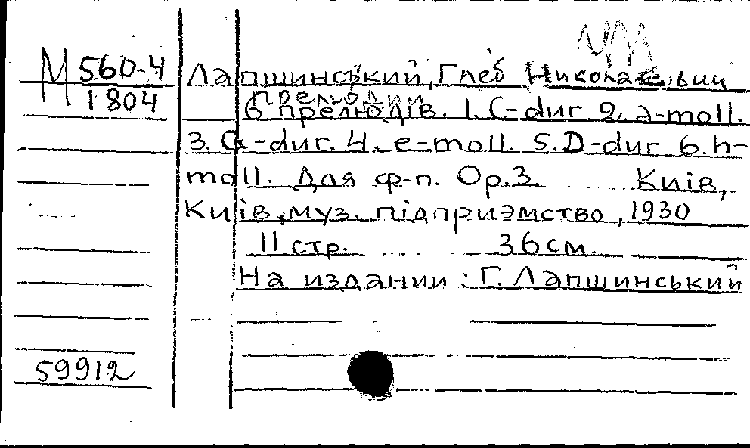 М 560-4
1804
Лапшинський, Глеб Николаевич
прелюдии
6 прелюдів. 1. C-dur 2. a-moll.
3. G-dur. 4. e-moll. 5. D-dur 6. h-
moll. Для ф-п. Op. 3. Київ,
Київ, муз. підприэмство, 1930
11 стр. 36 см.
На издании: Г. Лапшинський
59912